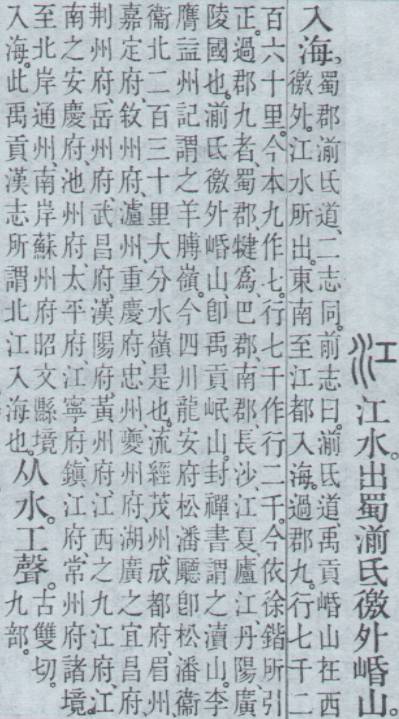 江 江水。出蜀湔氐徼外崏山。
入海。
蜀郡湔氐道、二志同。前志曰。湔氐道、禹貢崏山在西
徼外。江水所出。東南至江都入海。過郡九。行七千二
百六十里。今本九作七。行七千作行二千。今依徐鍇所引
正。過郡九者、蜀郡、犍爲、巴郡、南郡、長沙、江夏、廬江、丹陽、廣
陵國也。湔氐徼外崏山、卽禹貢岷山。封禪書謂之瀆山。李
膺益州記謂之羊膊嶺。今四川龍安府松潘廳卽松潘衞
衞北二百三十里大分水嶺是也。流經茂州、成都府、眉州、
嘉定府、敘州府、瀘州、重慶府、忠州、夔州府、湖廣之宜昌府、
荆州府、岳州府、武昌府、漢陽府、黃州府、江西之九江府、江
南之安慶府、池州府、太平府、江寧府、鎭江府、常州府諸境。
至北岸通州、南岸蘇州府昭文縣境
入海。此禹貢漢志所謂北江入海也。
从水。工聲。
古雙切。
九部。